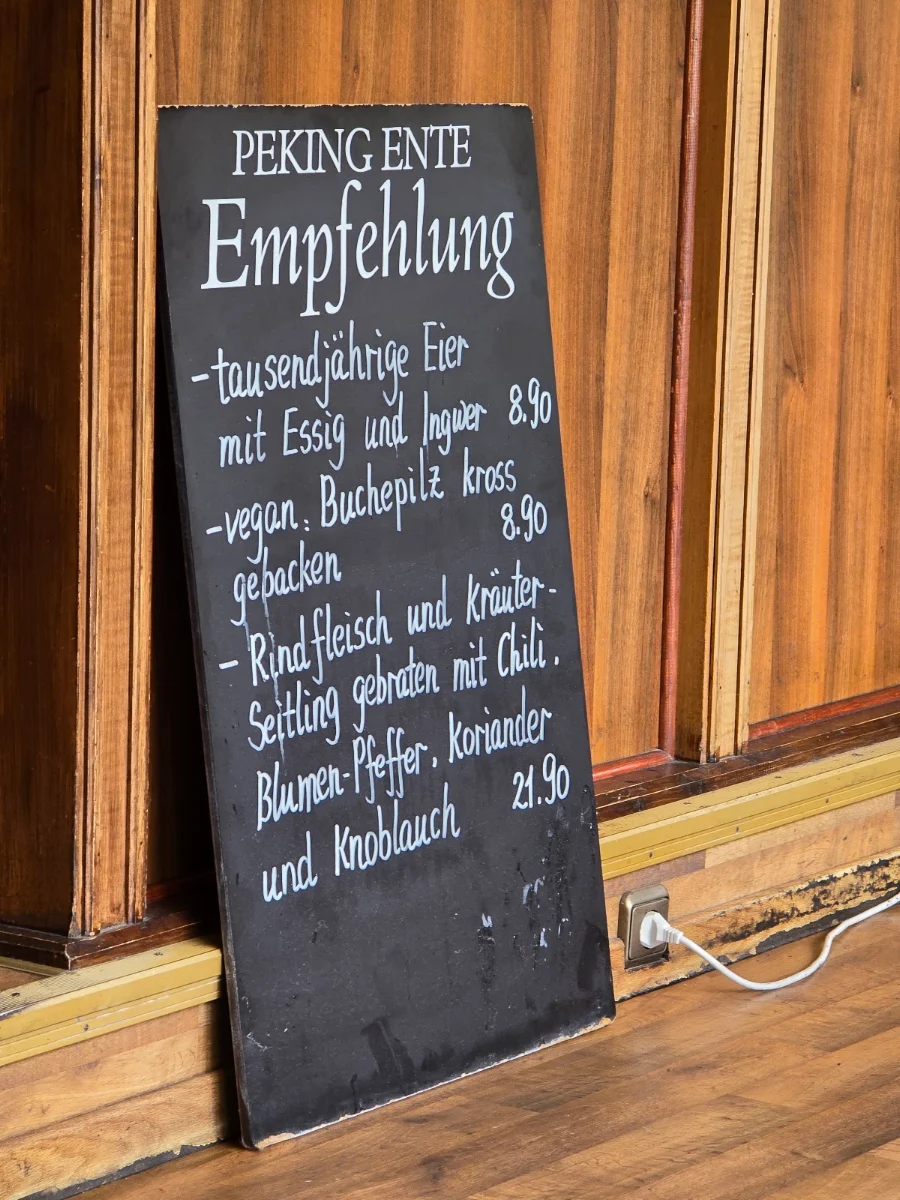 PEKING ENTE
Empfehlung
- tausendjährige Eier
mit Essig und Ingwer 8.90
- vegan: Buchepilz kross
gebacken 8.90
- Rindfleisch und Kräuter-
Seitling gebraten mit Chili.
Blumen-Pfeffer. Koriander
und Knoblauch 21.90